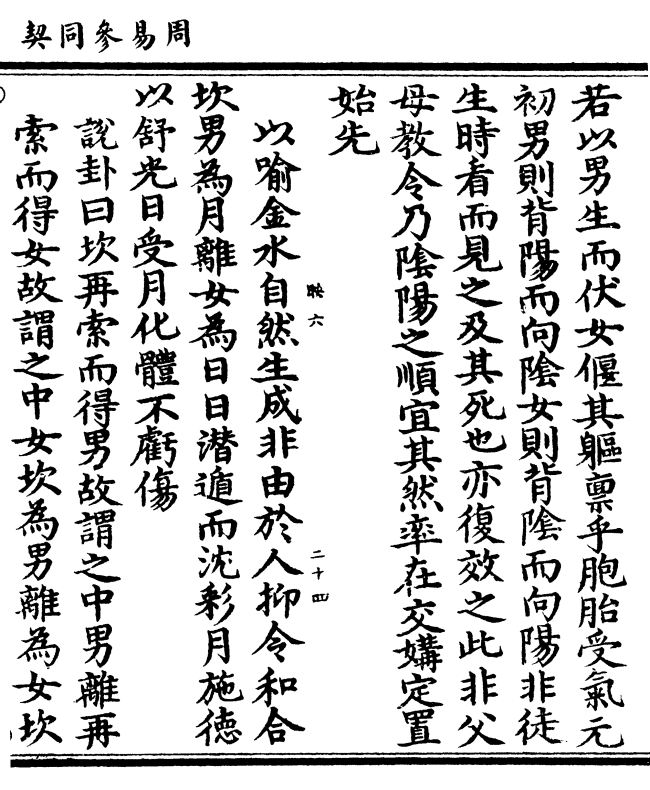 周易參同契
若以男生而伏女偃其軀稟乎胞胎受氣元
初男則背陽而向陰女則背陰而向陽非徒
生時看而見之及其死也亦復效之此非父
母教令乃陰陽之順宜其然率在交媾定置
始先
映六
二十四
以喻金水自然生成非由於人抑令和合
坎男為月離女為日日潜遁而沈彩月施德
以舒光日受月化體不虧傷
說卦曰坎再索而得男故謂之中男離再
索而得女故謂之中女坎為男離為女坎